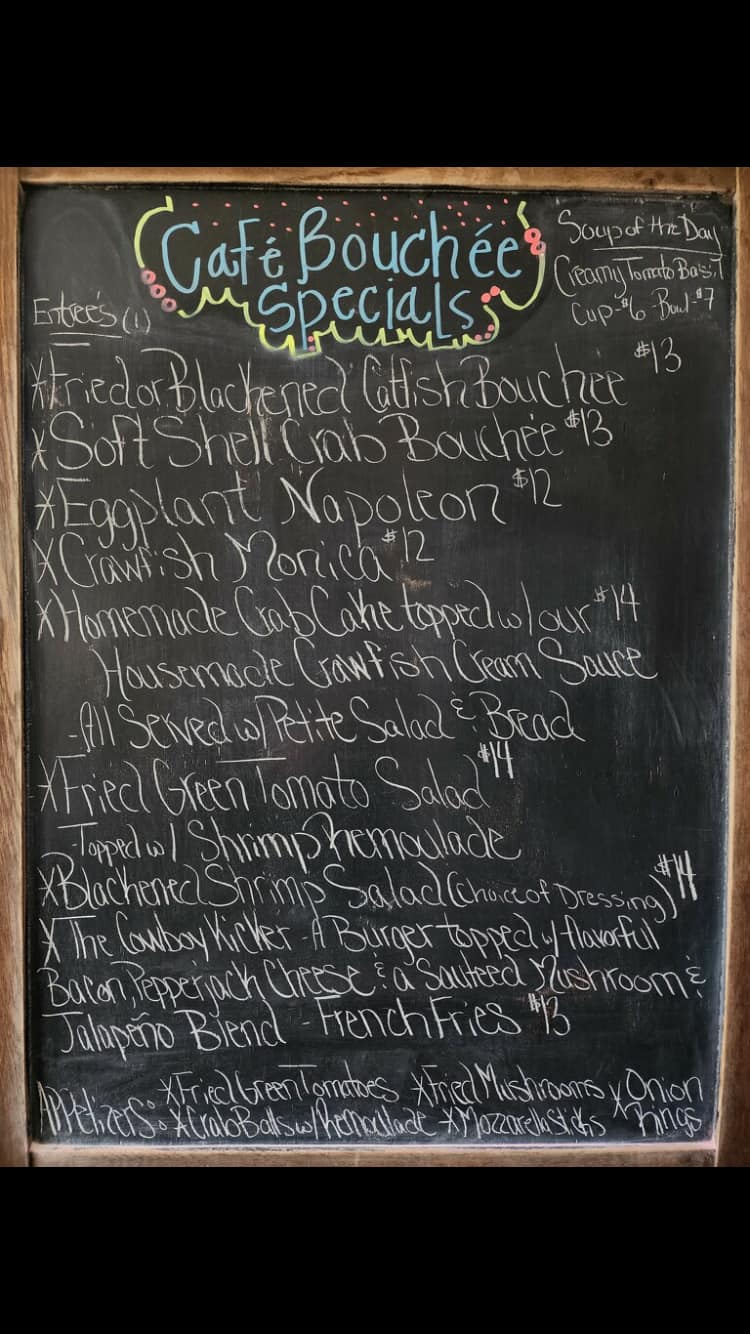 Café Bouchée
Specials
Soup of the Day
Creamy Tomato Basil
Cup-$6-Bowl-$7
Entrees (1)
*Fried or Blackened Catfish Bouchee $13
*Soft Shell Crab Bouchée $13
*Eggplant Napoleon $12
*Crawfish Monica $12
*Homemade Crab Cake topped w/ our $14
Housemade Crawfish Cream Sauce
-All Served w/ Petite Salad & Bread
*Fried Green Tomato Salad $14
-Topped w/ Shrimp Remoulade
*Blackened Shrimp Salad (Choice of Dressing) $14
*The Cowboy Kicker - A Burger topped w/ flavorful
Bacon, Pepperjack Cheese & a Sauteed Mushroom &
Jalapeño Blend - French Fries $13
Appetizers: *Fried Green Tomatoes *Fried Mushrooms *Onion Rings
*Crab Balls w/ Remoulade *Mozzarella Sticks